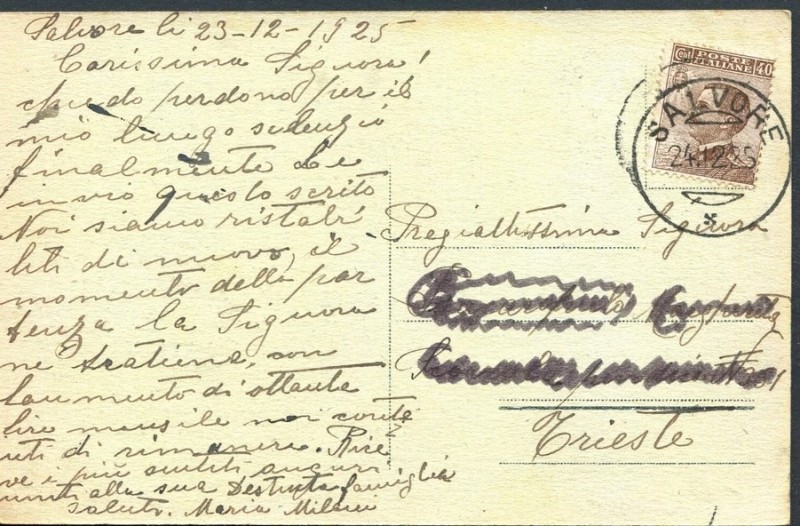 Salvore li 23-12-1925
Carissima Signora!
chiedo perdono per il
mio lungo silenzio
finalmente Le
invio questo scrito
Noi siamo ristabi
liti di nuovo, il
momento della par
tenza la Signora
ne tratiene, con
laumento di ottanta
lire mensile noi conte
nti di rimanere. Rice
ve i più sentiti auguri
uniti alla sua Destinta famiglia
saluto. Maria Milani
Cent POSTE ITALIANE 40
SALVORE
24.12.25
Pregiattissima Signora
Trieste